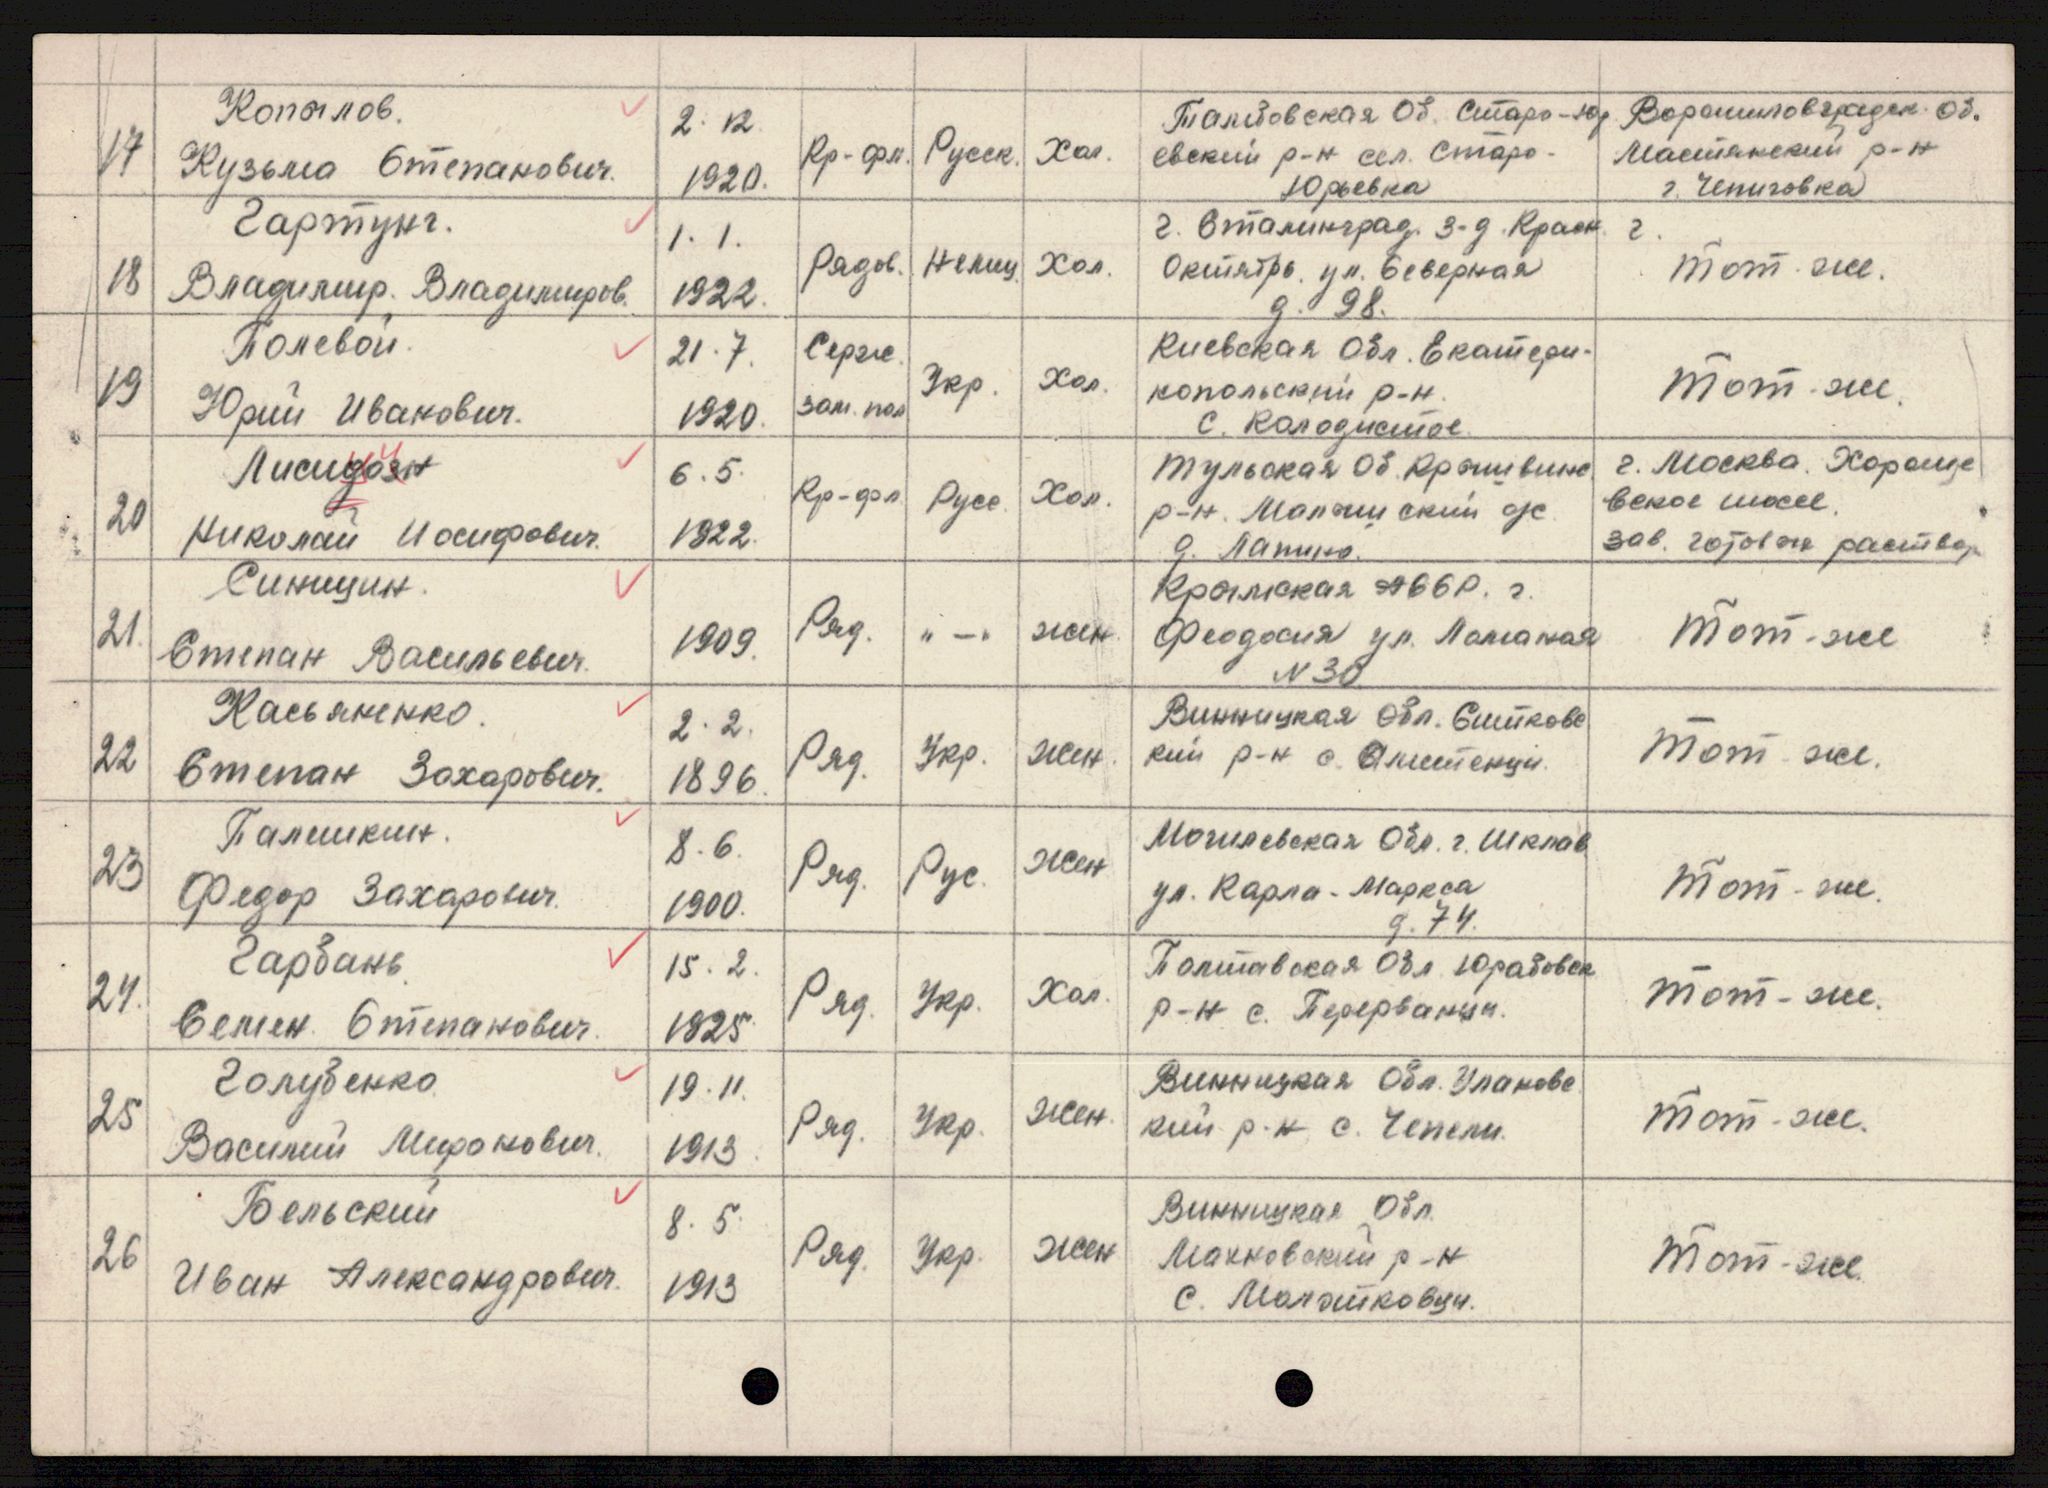 17
Копылов.
Кузьма Степанович.
2. 12.
1920.
Кр-фл.
Русск.
Хол.
Тамбовская Об. Старо-Юр
евский р-н сел. Старо-
Юрьевка
Ворошиловградск. Об.
р-н
18
Гартунг.
Владимир. Владимиров.
1. 1.
1922.
Рядов.
Немец.
Хол.
г. Сталинград. З-д. Красн.
Октябрь. ул. Северная
д. 98.
г.
Тот-же.
19
Полевой.
Юрий Иванович.
21. 7.
1920.
Серж.
зам. пол
Укр.
Хол.
Киевская Обл. Екатери-
нопольский р-н.
с. Колодистое.
Тот-же.
20
Николай Иосифович.
6. 5.
1922.
Кр-фл
Русс.
Хол.
Тульская Об. Крапивинс
р-н.
д. Лапино.
г. Москва. Хороше
вское шоссе.
зав. готовых раствор
21.
Синицин.
Степан Васильевич.
1909.
Ряд.
"—"
жен.
Крымская АССР. г.
Феодосия ул.
N 30
Тот-же
22
Касьяненко.
Степан Захарович.
2. 2.
1896.
Ряд.
Укр.
жен.
Винницкая Обл. Ситковс
кий р-н с.
Тот-же.
23
Палишкин.
Федор Захарович.
8. 6.
1900.
Ряд.
Рус.
Жен
Могилевская Обл. г. Шклов
ул. Карла-Маркса
д. 74.
Тот-же.
24.
Гарбань
Семен. Степанович.
15. 2.
1925
Ряд.
Укр.
Хол.
Полтавская Обл.
р-н с.
Тот-же.
25
Голубенко
Василий Миронович.
19. 11.
1913.
Ряд.
Укр.
Жен.
Винницкая Обл. Улановс
кий р-н с. Чепели.
Тот-же.
26
Бельский
Иван Александрович.
8. 5.
1913
Ряд.
Укр.
Жен
Винницкая Обл.
Махновский р-н
с.
Тот-же.